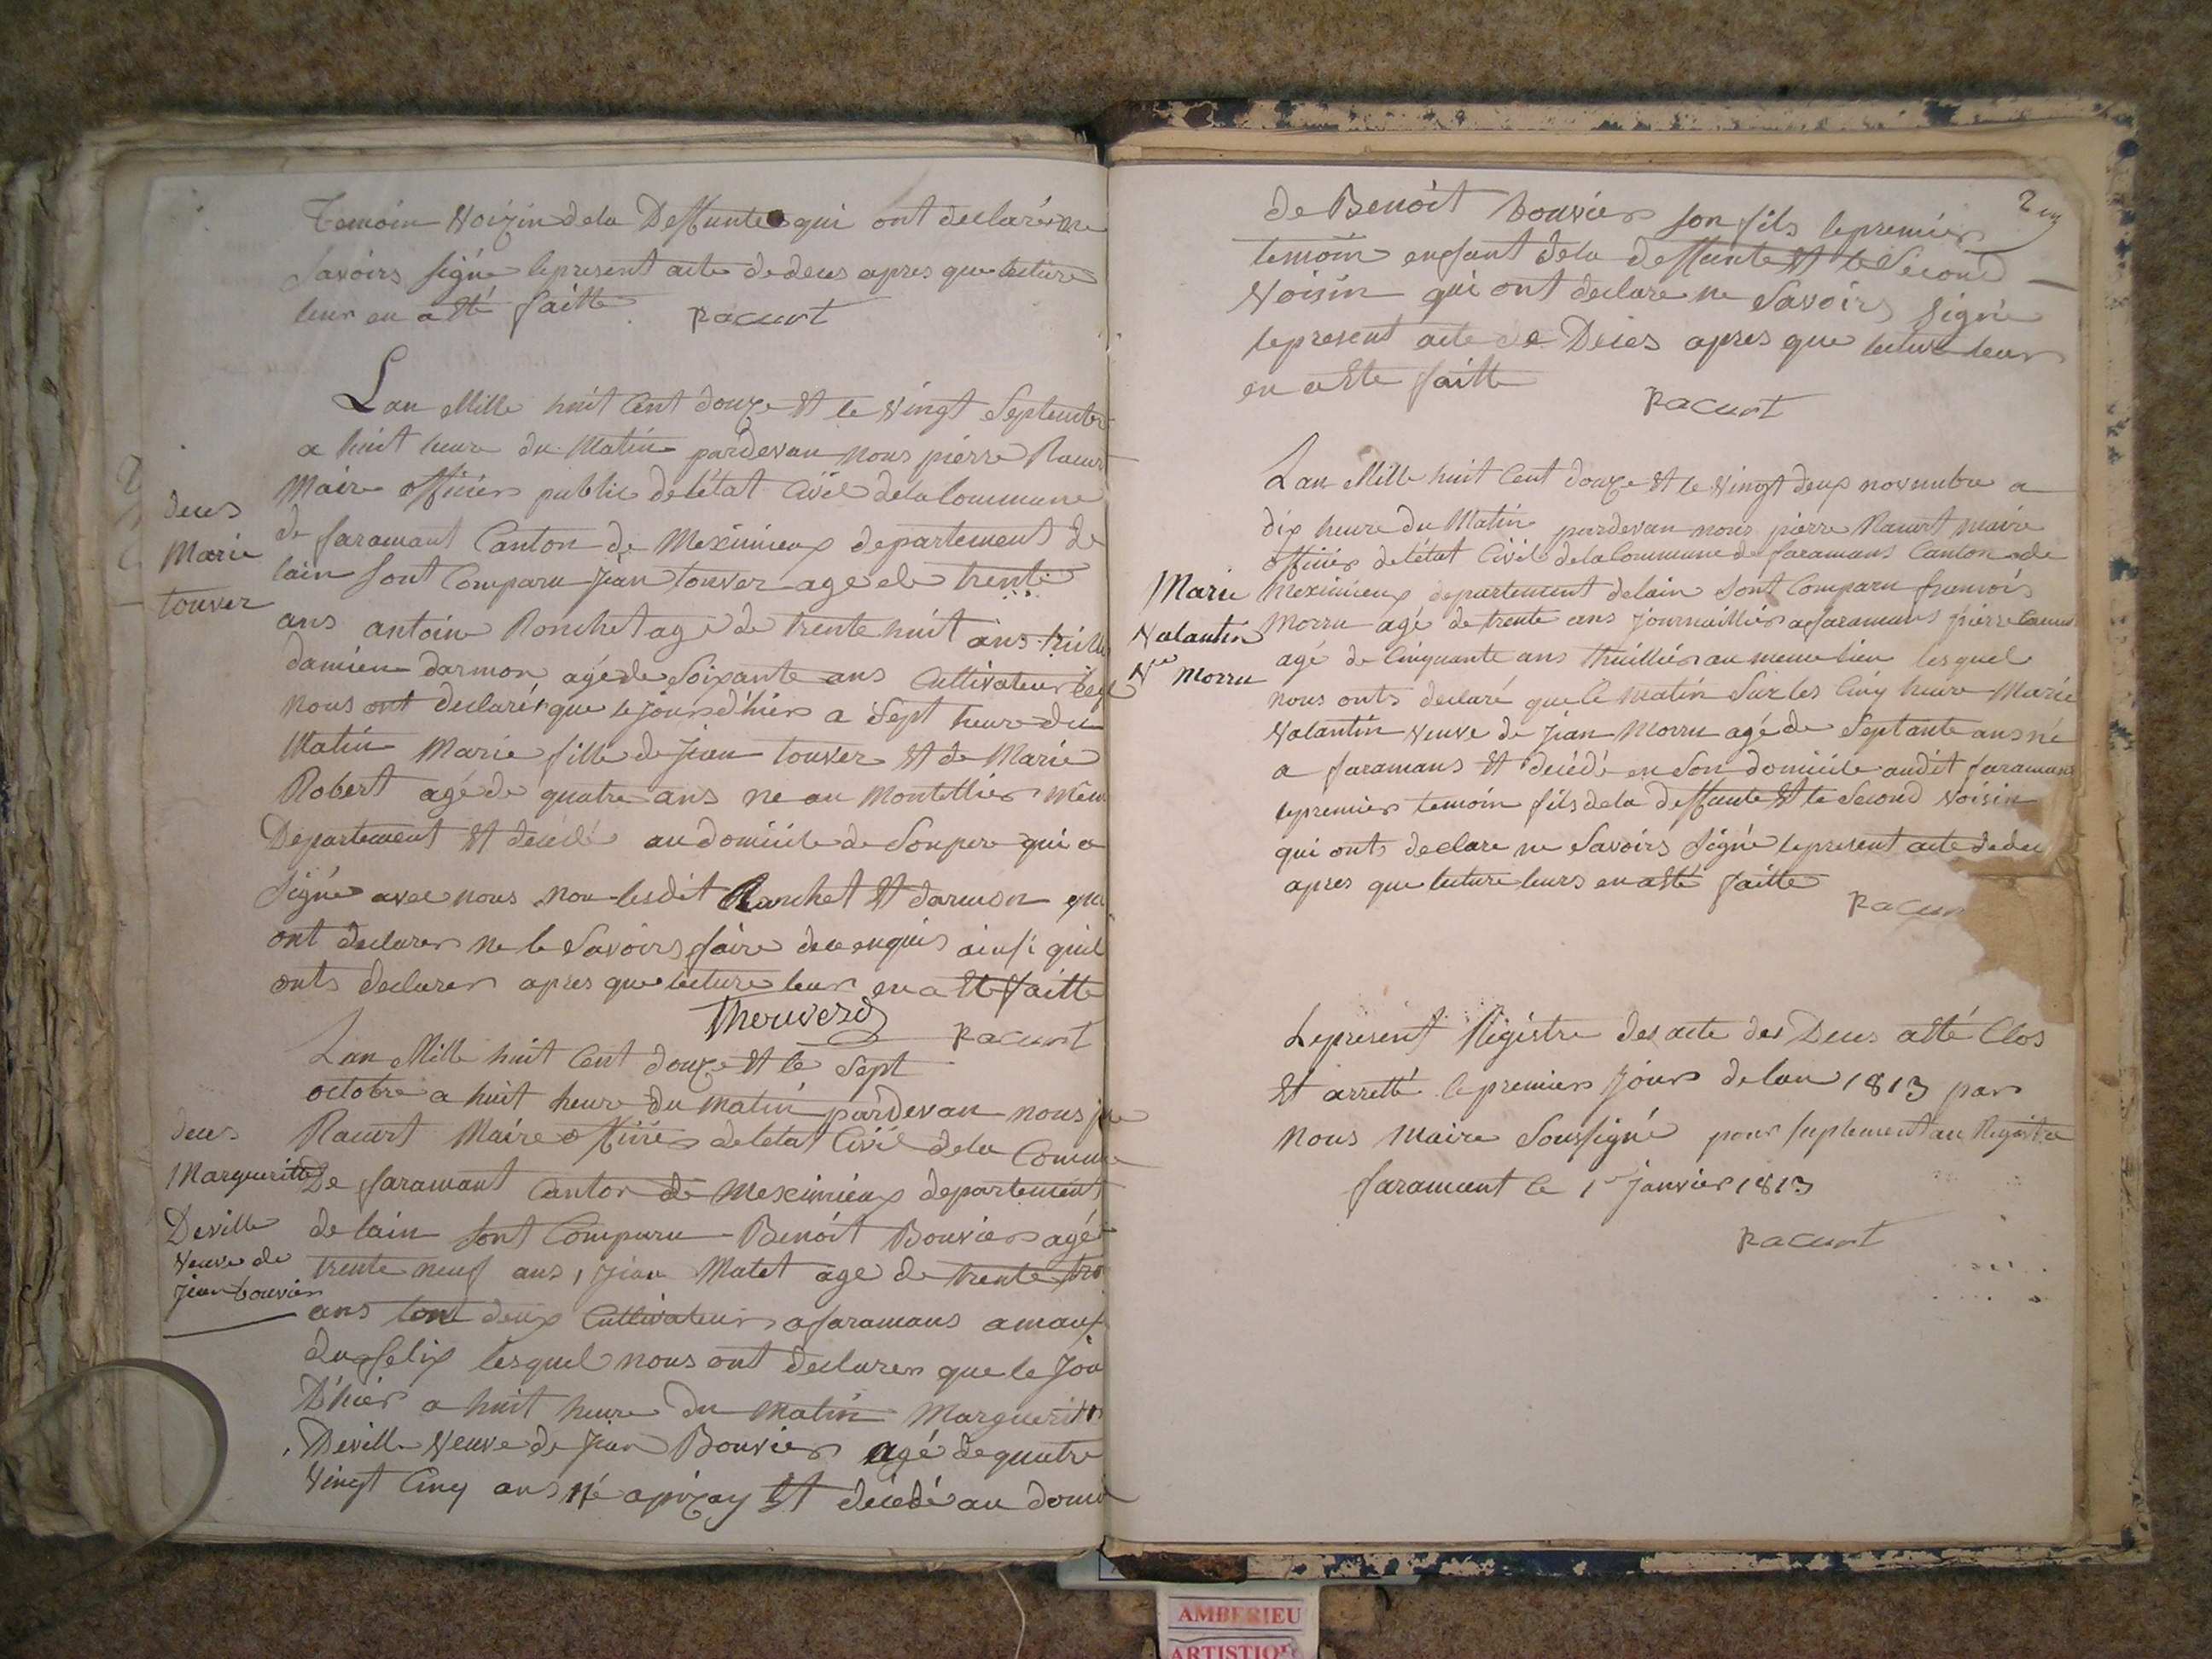 Temoin Voizin dela Deffunte qui ont declaré ne
Savoirs signé le present acte de deces apres que lecture
leur en a Eté faitte Racurt
Lan Mille huit Cent douze Et le Vingt Septembre
a huit heure du Matin pardevan nous pierre Racurt
Maire officier public de l'état Civil dela Commune
deces
Marie
touver
de faramant Canton de Meximieux departement de
lain sont Comparu Jean touver age de trente
ans antoine Ronchet agé de trente huit ans
damien darmon agé de Soixante ans Cultivateur
nous ont declaré que le jour d'hier a Sept heure du
Matin Marie fille de Jean touver Et de Marie
Robert agé de quatre ans ne au Montellier mem
Departement Et decédé au domicile de Son pere qui a
Signé avec nous non lesdit Ronchet Et darmon qui
ont declarer ne le Savoirs faire de ce enquis ainsi quil
onts declarer apres que lecture leur en a Eté faitte
Thouverd Racurt
Lan Mille huit Cent douze Et le Sept
octobre a huit heure du matin pardevan nous pre
Racurt Maire officier de letat Civil dela Comune
deces
Marguerite
Deville
Veuve de
Jean bouvier
De faramant Canton de Meximieux departement
de lain sont Comparu Benoit Bouvier agé
trente neuf ans, Jean Matet age de trente tro
ans tout deux Cultivateur a faramans a
du felix lesquel nous ont declarer que le Jou
D'hier a huit heure du matin Marguerite
Deville Veuve de Jean Bouvier agé de quatre
Vingt Cinq ans né a pizay Et decédé au domi
2
de Benoit bouvier son fils le premier
temoin enfant dela deffunte Et le Second
Voisin qui ont declare ne Savoirs signé
le present acte de Déces apres que lecture leur
en a Ete faitte
Racurt
Lan Mille huit Cent douze Et le Vingt deux novembre a
dix heure du Matin pardevan nous pierre Racurt maire
officier de l'état Civil dela Commune de faramans Canton de
Marie
Valantin
Ve Morru
Meximieux departement de lain sont Comparu francois
Morru agé de trente ans Journaillier a faramans pierre
agé de Cinquante ans thuillier au meme lieu lesquel
nous onts declaré que le matin Sur les Cinq heure Marie
Valantin Veuve de Jean Morru agé de Septante ans né
a faramans Et decédé en Son domicile audit faramans
le premier temoin fils dela deffunte Et le Second Voisin
qui onts declare ne Savoirs Signé le present acte de dec
apres que lecture leurs en a Eté faitte
Racur
Le present Régistre des acte des Deces a Eté Clos
Et arretté le premier Jour de lan 1813 par
nous Maire Soussigné pour suplement au Registre
faramant le 1er Janvier 1813
Racurt
AMBERIEU
ARTISTIQ